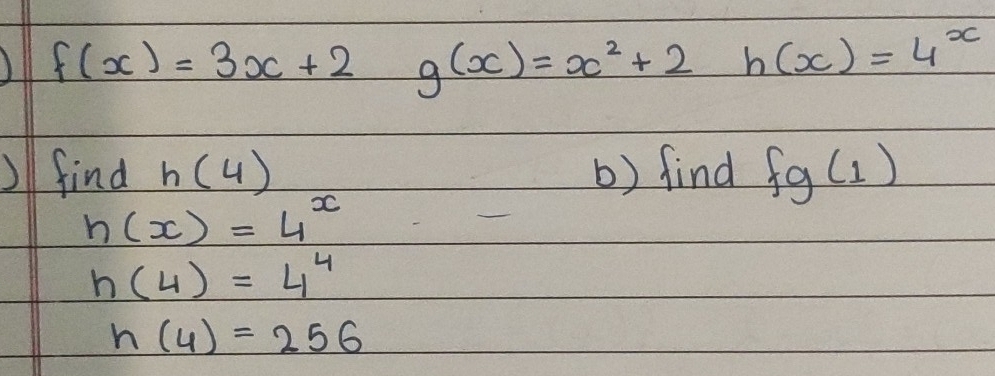 ) f(x) = 3x + 2 g(x) = x² + 2 h(x) = 4ˣ
) find h(4) b) find fg(1)
h(x) = 4ˣ
h(4) = 4⁴
h(4) = 256